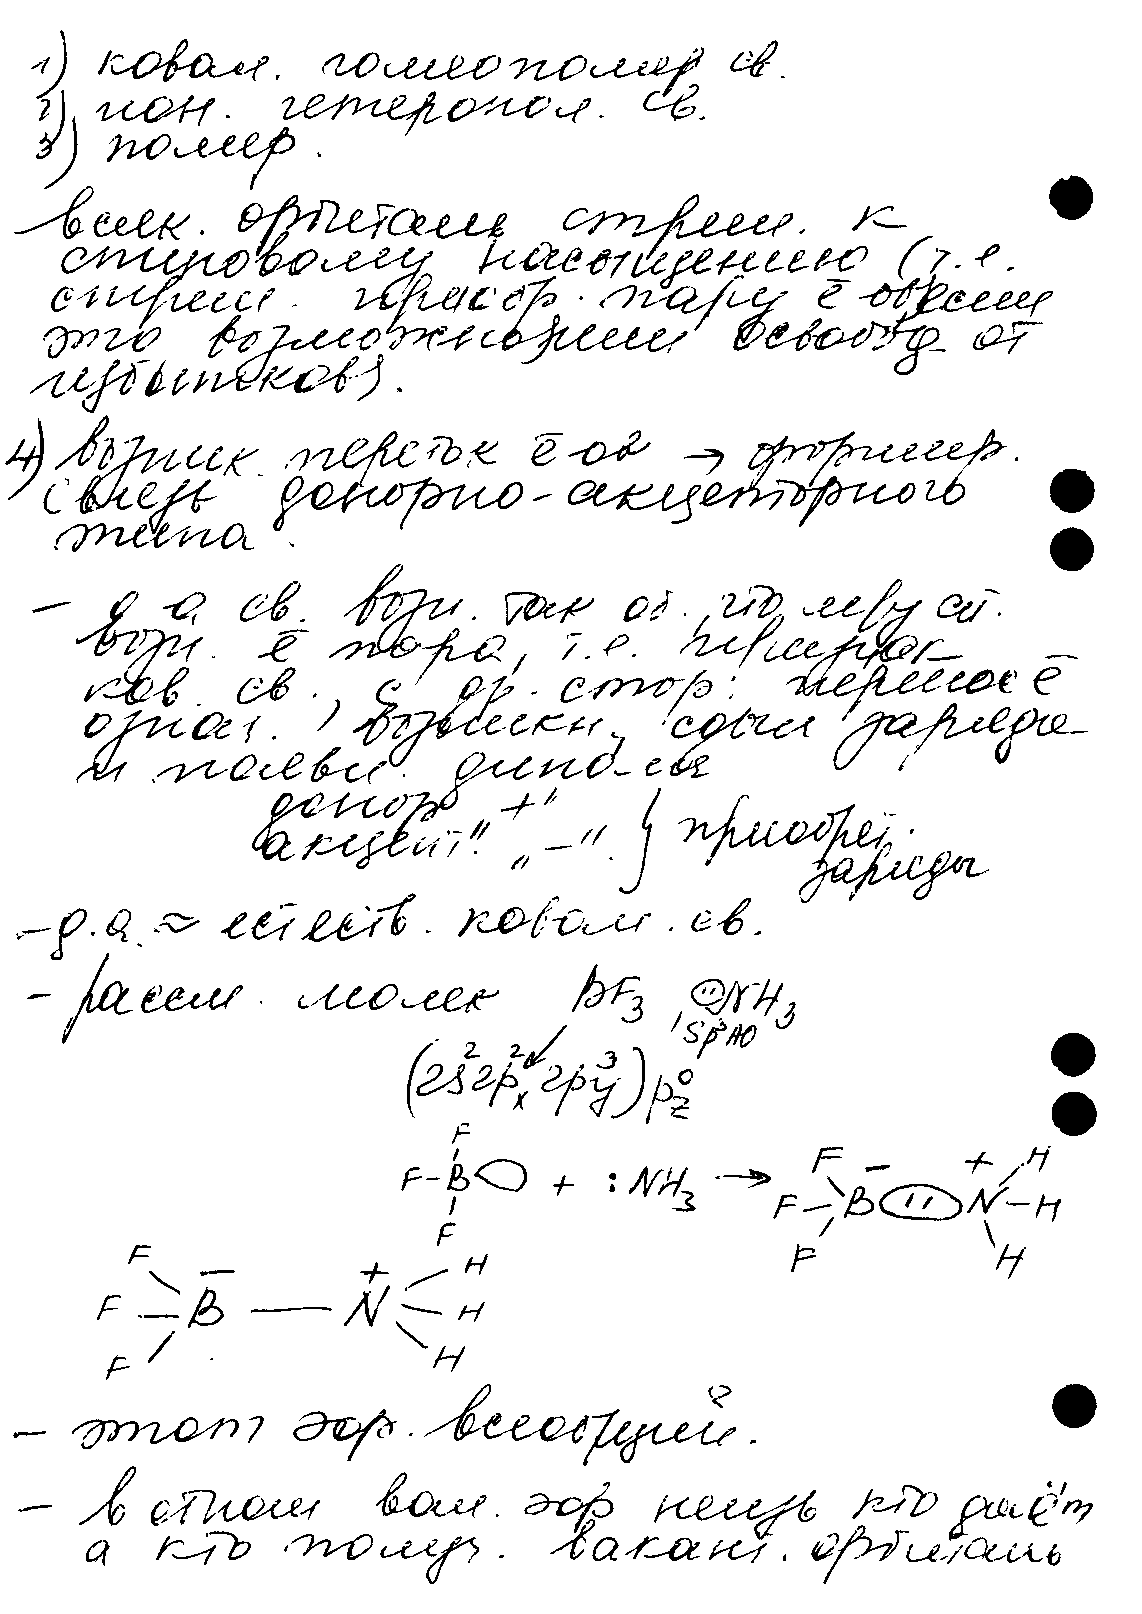 1) ковал. гомеополяр св.
2) ион. гетеропол. св.
3) поляр.
- всяк. орбиталь стрем. к
спиновому насыщению (т.е.
стрем. приобр. пару ē
это возможно) или освобод от
избытков).
4) возник. переток ē → формир.
связь донорно-акцепторного
типа.
- д а св. возн. так об. что между ст.
возн. ē пара, т.е.
ков. св., с др. стор: перенос ē
означ., возникн. сдвиг заряда
и появл. диполя
донор „+“
акцепт. „–“ } приобрет.
заряды
- д.а. ≈ естеств. ковал. св.
- рассм. молек BF3 :NH3
sp3АО
(2s² 2px² 2py³) pz⁰
F
F-B + :NH3 →
F
F – + H
F-B (..) N-H
F H
F – + H
F — B — N — H
F H
- этот эфф. всеобщий.
- в отлич вал. эфф нельзя кто даёт
а кто получ. вакант. орбиталь